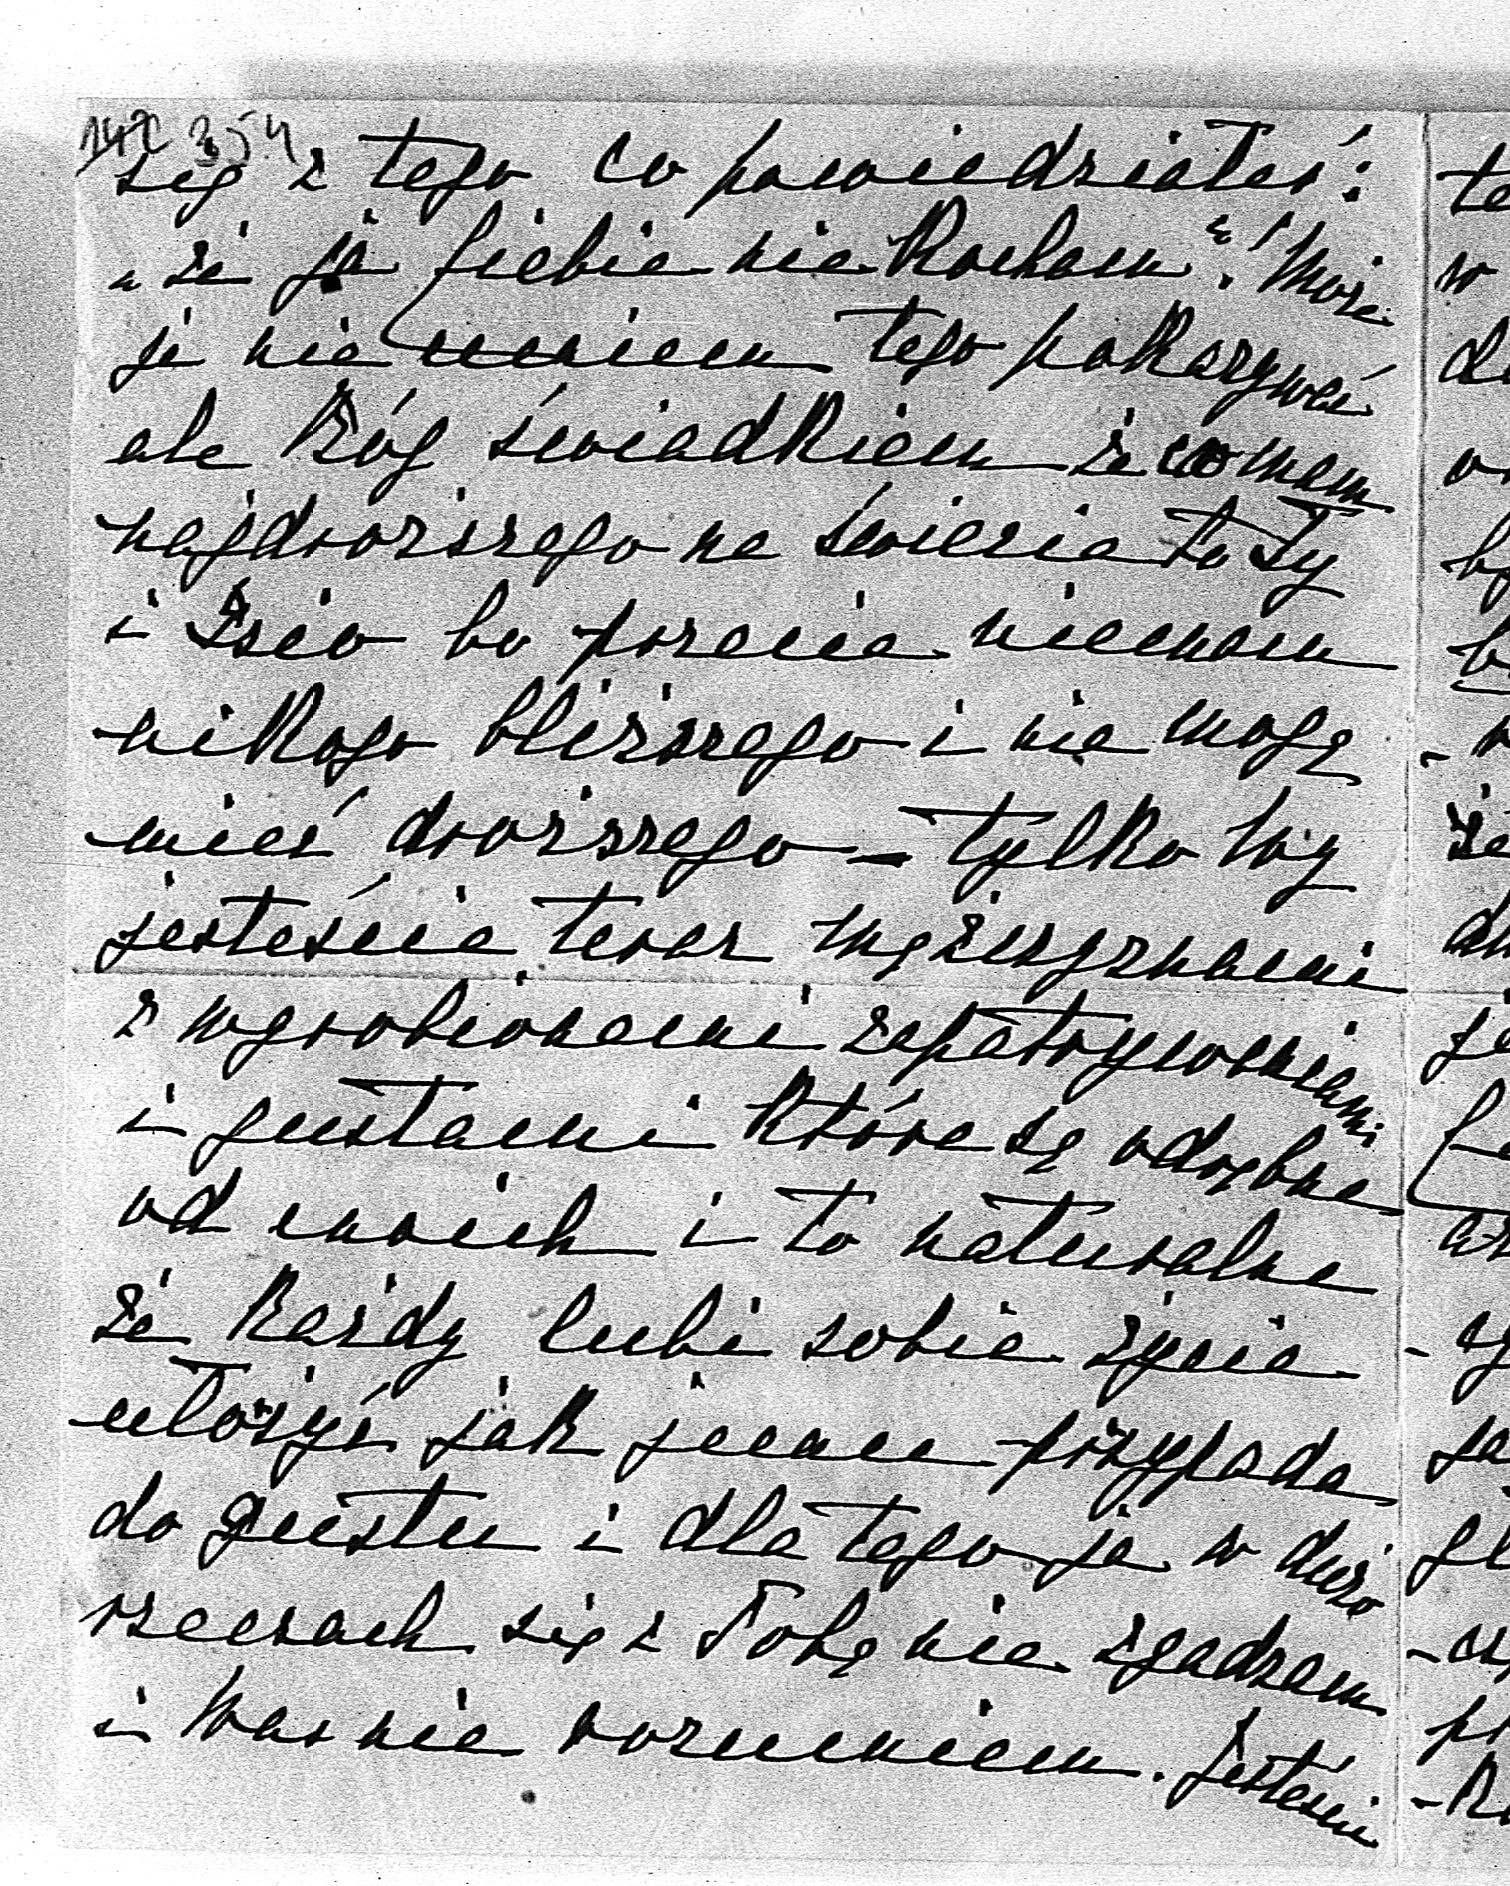 354
się z tego co powiedziałeś:
„że ja Ciebie nie kocham"! Może
ja nie umiem tego pokazywać
ale Bóg świadkiem że co mam
najdroższego na świecie to Ty
i bo przecie niemam
nikogo bliższego i nie mogę
mieć droższego – tylko Wy
jesteście teraz mężczyznami
z wyrobionemi zapatrywaniami
i gustami które są odrębne
od moich i to naturalne
że każdy lubi sobie życie
ułożyć jak jemu przypada
do gustu i dla tego ja w dużo
rzeczach się z Tobą nie zgadzam
i Was nie rozumiem. Jesteście